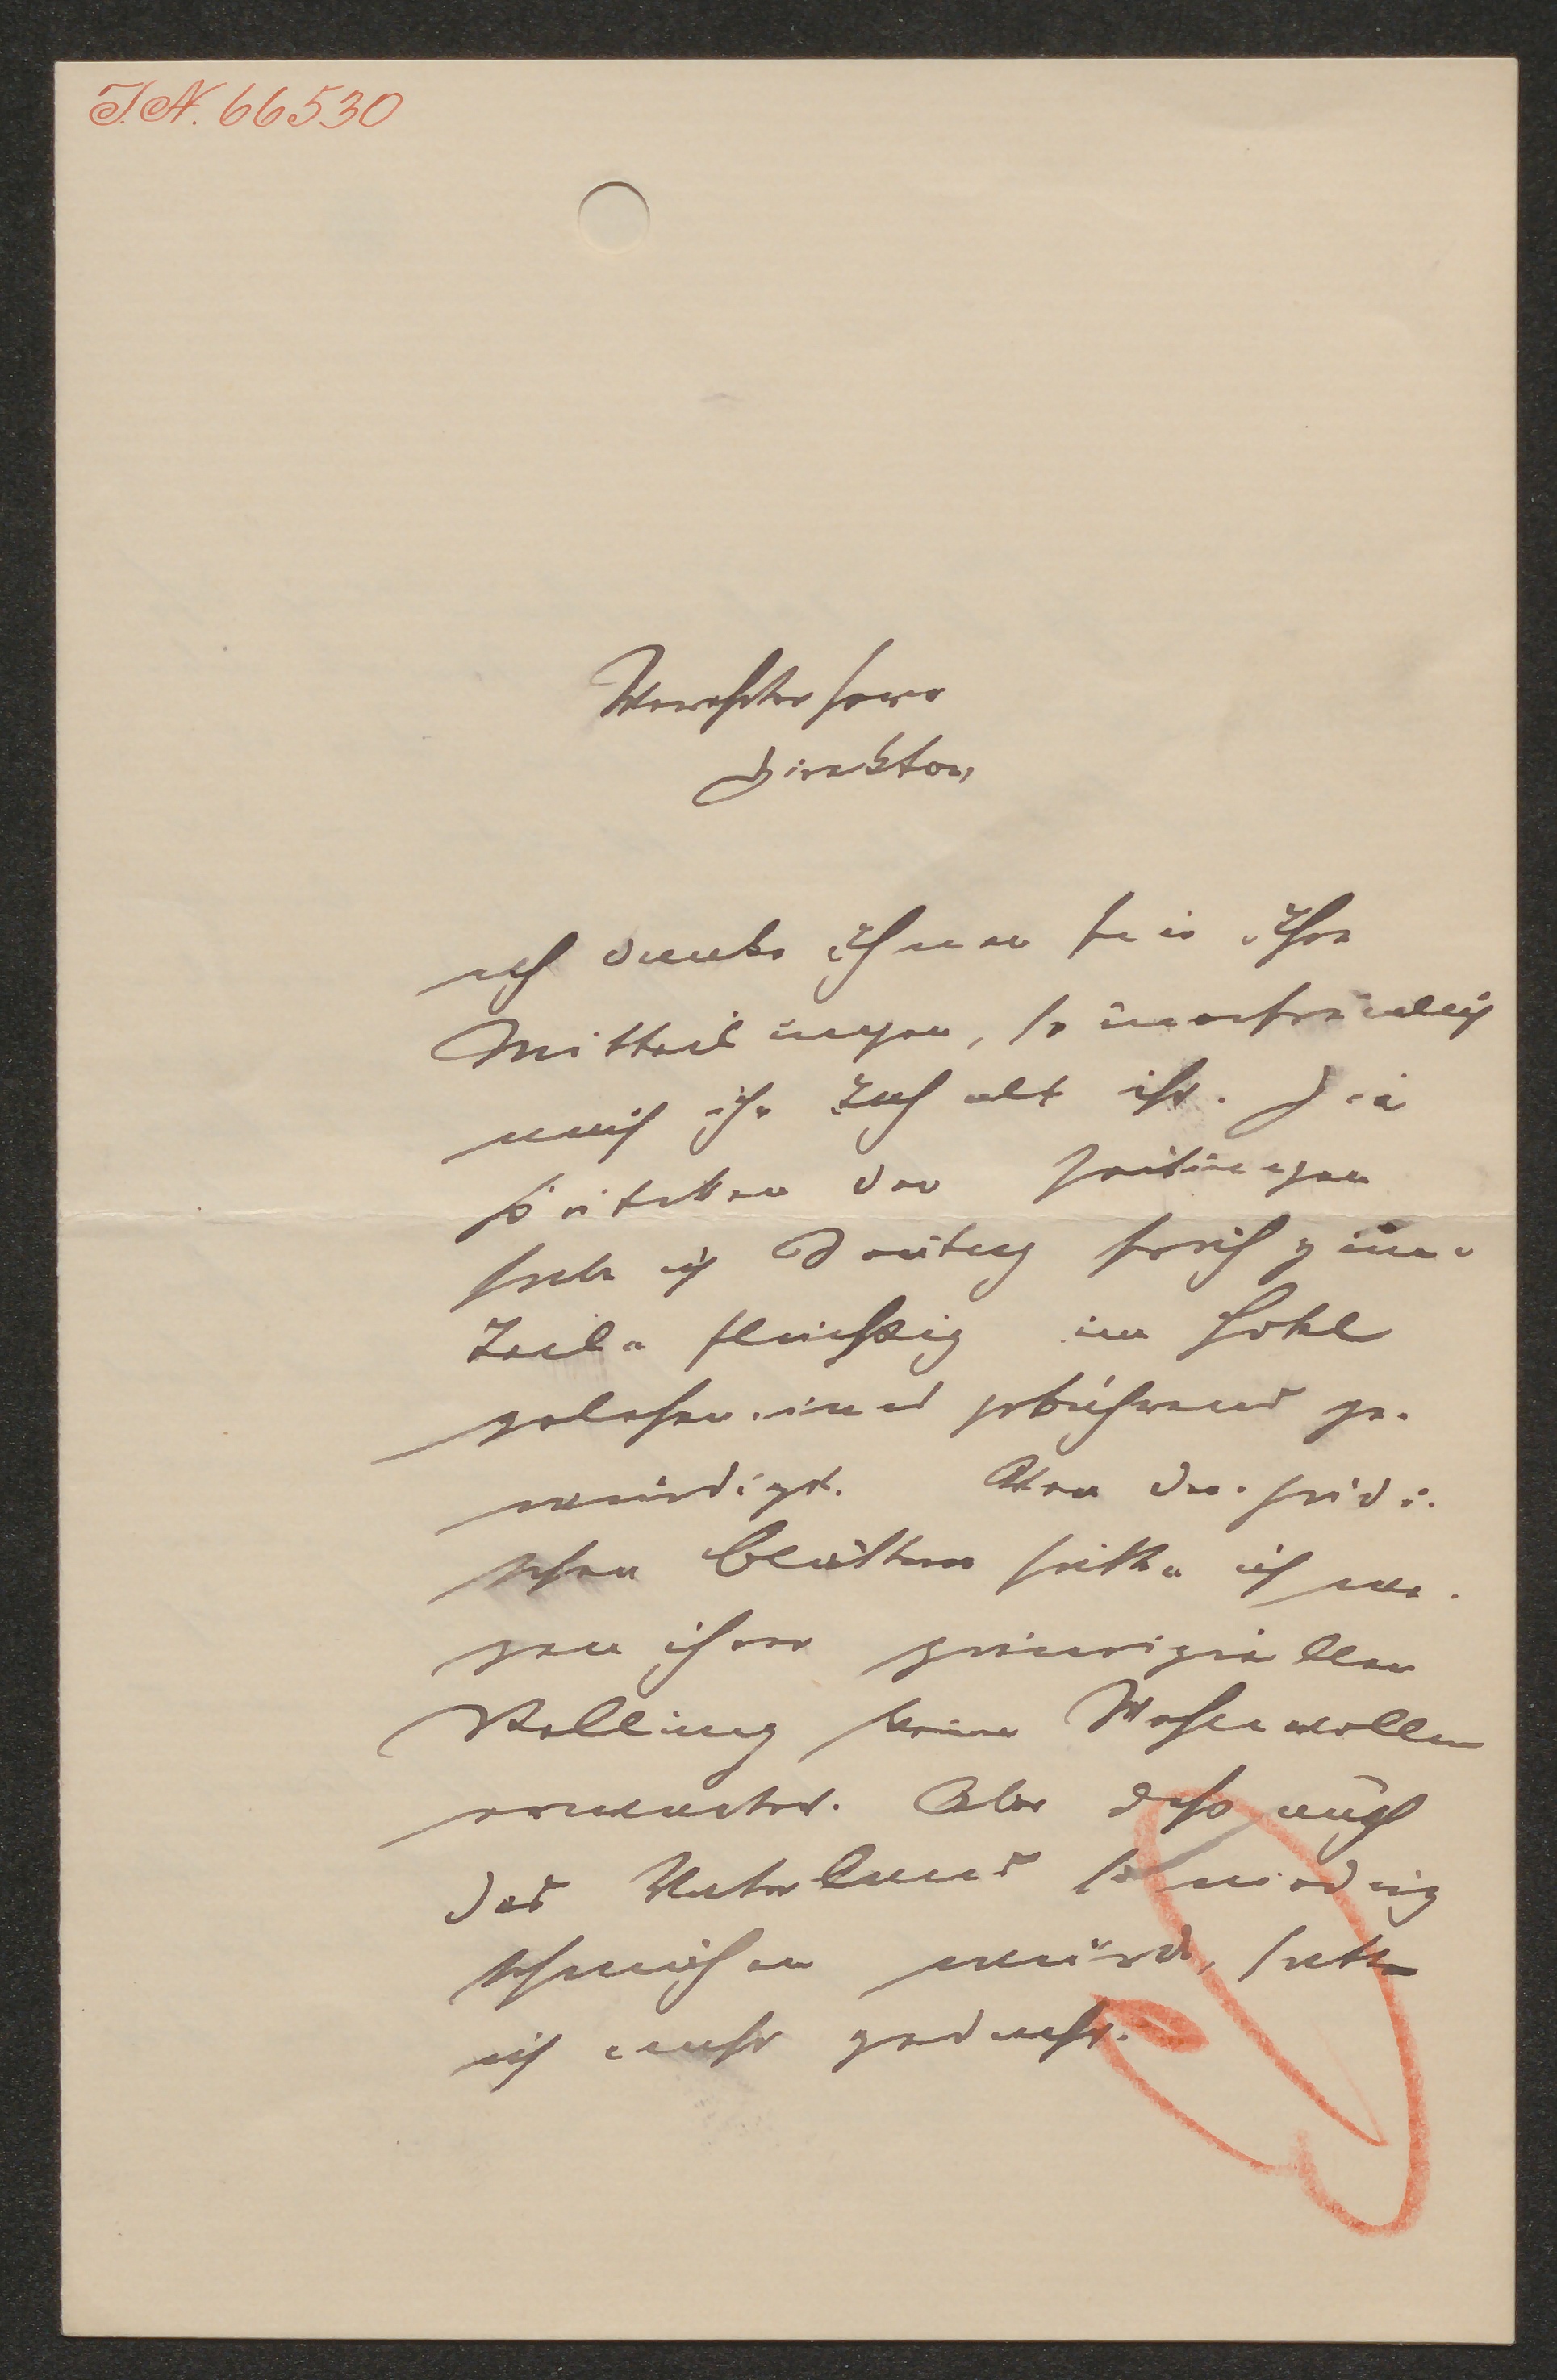 I.N. 66530
Verehrter Herr
Direktor,
ich danke Ihnen für Ihre
Mitteilungen, so unerfreulich
auch ihr Inhalt ist. Die
der Zeitungen
habe ich Sonntag früh zum
Teile fleißig im Hotel
gelesen und gebührend ge-
würdigt. Von den jüdi-
schen Blättern hätte ich we-
gen ihrer prinzipiellen
Stellung kein Wohlwollen
erwartet. Aber daß auch
das Vaterland so niedrig
schreiben würde, hätte
ich nicht gedacht.